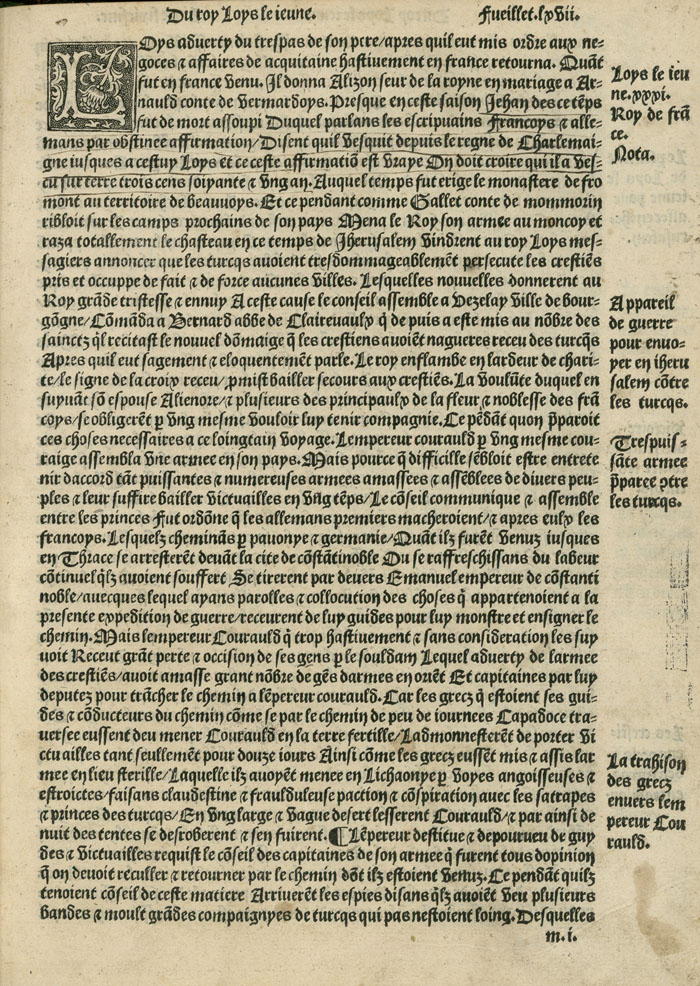 Du roy Loys le ieune.
Fueillet.lxvii.
LOys aduerty du trespas de son pere/apres quil eut mis ordre aux ne-
goces ⁊ affaires de acquitaine hastiuement en france retourna. Quāt
fut en france venu. Il donna Alizon seur de la royne en mariage a Ar-
nauld conte de Vermardoys. Presque en ceste saison Jehan des ce tēps
fut de mort assoupi Duquel parlans les escripuains Francoys ⁊ alle-
mans par obstinee affirmation/Disent quil vesquit depuis le regne de Charlemai-
gne iusques a cestuy Loys et ce ceste affirmatiō est vraye On doit croire qui il a ves-
cu sur terre trois cens soiyante ⁊ vng an. Auquel temps fut erige le monastere de fro
mont au territoire de beauuoys. Et ce pendant comme Gallet conte de mommorin
ribloit sur les camps prochains de son pays Mena le Roy son armee au moncoy et
raza totallement le chasteau en ce temps de Jherusalem vindrent au roy Loys mes-
sagiers annoncer que les turcqs auoient tresdommageablemēt persecute les crestiēs
pris et occuppe de fait ⁊ de force aucunes villes. Lesquelles nouuelles donnerent au
Roy grāde tristesse ⁊ ennuy A ceste cause le conseil assemble a Vezelay ville de bour-
gōgne/Cōmāda a Bernard abbe de Clairevaulx q̄ de puis a este mis au nōbre des
sainctz ql̄ recitast le nouuel dōmaige q̄ les crestiens auoiēt nagueres receu des turcqs
Apres quil eut sagement ⁊ eloquentemēt parle. Le roy enflambe en lardeur de chari-
te/le signe de la croix receu/ꝓmist bailler secours aux crestiēs. La voulūte duquel en
suyuāt sō espouse Alienore/⁊ plusieurs des principaulx de la fleur ⁊ noblesse des frā
coys/se obligerēt ꝑ vng mesme vouloir luy tenir compagnie. Ce pēdāt quon ꝑparoit
ces choses necessaires a ce loingtain voyage. Lempereur courauld ꝑ vng mesme cou-
raige assembla vne armee en son pays. Mais pource q̄ difficille sēbloit estre entrete
nir daccord tāt puissantes ⁊ numereuses armees amassees ⁊ assēblees de diuers peu-
ples ⁊ leur suffire bailler victuailles en vng tēps/Le cōseil communique ⁊ assemble
entre les princes Fut ordōne q̄ les allemans premiers macheroient/⁊ apres eulx les
francoys. Lesquelz cheminās ꝑ pauonye ⁊ germanie/Quāt ilz furēt venuz iusques
en Thrace se arresterēt deuāt la cite de cōstātinoble Ou se raffreschissans du labeur
cōtinuel ql̄z auoient souffert Se tirerent par deuers Emanuel empereur de cōstanti
noble/auecques lequel ayans parolles ⁊ collocution des choses q̄ appartenoient a la
presente expedition de guerre/receurent de luy guides pour luy monstre et ensigner le
chemin. Mais lempereur Courauld q̄ trop hastiuement ⁊ sans consideration les suy
uoit Receut grāt perte ⁊ occision de ses gens ꝑ le souldam Lequel aduerty de larmee
des crestiēs/auoit amasse grant nōbre de gēs darmes en oriēt Et capitaines par luy
deputez pour trācher le chemin a lēpereur courauld. Car les grecz q̄ estoient ses gui-
dēs ⁊ cōducteurs du chemin cōme se par le chemin de peu de iournees Capadoce tra-
uersee eussent deu mener Courauld en la terre fertille/Ladmonnesterēt de porter vi
ctuailles tant seullement pour douze iours Ainsi cōme les grecz eussēt mis ⁊ assis lar
mee en lieu sterille/Laquelle ilz auoyēt menee en Lichaonye ꝑ voyes angoisseuses ⁊
estroictes/faisans claudestine ⁊ fraulduleuse paction ⁊ cōspiration auec les satrapes
⁊ princes des turcqs/En vng large ⁊ vague desert lesserent Courauld/⁊ par ainsi de
nuit des tentes se desroberent ⁊ sen fuirent. ¶Lēpereur destitue ⁊ depourueu de guy
des ⁊ victuailles requist le cōseil des capitaines de son armee q̄ furent tous dopinion
q̄ on deuoit reculler ⁊ retourner par le chemin dōt ilz estoient venuz. Ce pēdāt quilz
tenoient cōseil de ceste matiere Arriuerēt les espies disans ql̄z auoiēt veu plusieurs
bandes ⁊ moult grādes compaignyes de turcqs qui pas nestoient loing. Desquelles
m.i.
Loys le ieu
ne.xxxi.
Roy de frā
ce.
Nota.
Appareil
de guerre
pour enuo-
yer en iheru
salem cōtre
les turcqs.
Trespuis-
sāte armee
ꝑparee ꝯtre
les turcqs.
La trahison
des grecz
enuers lem
pereur Cou
rauld.